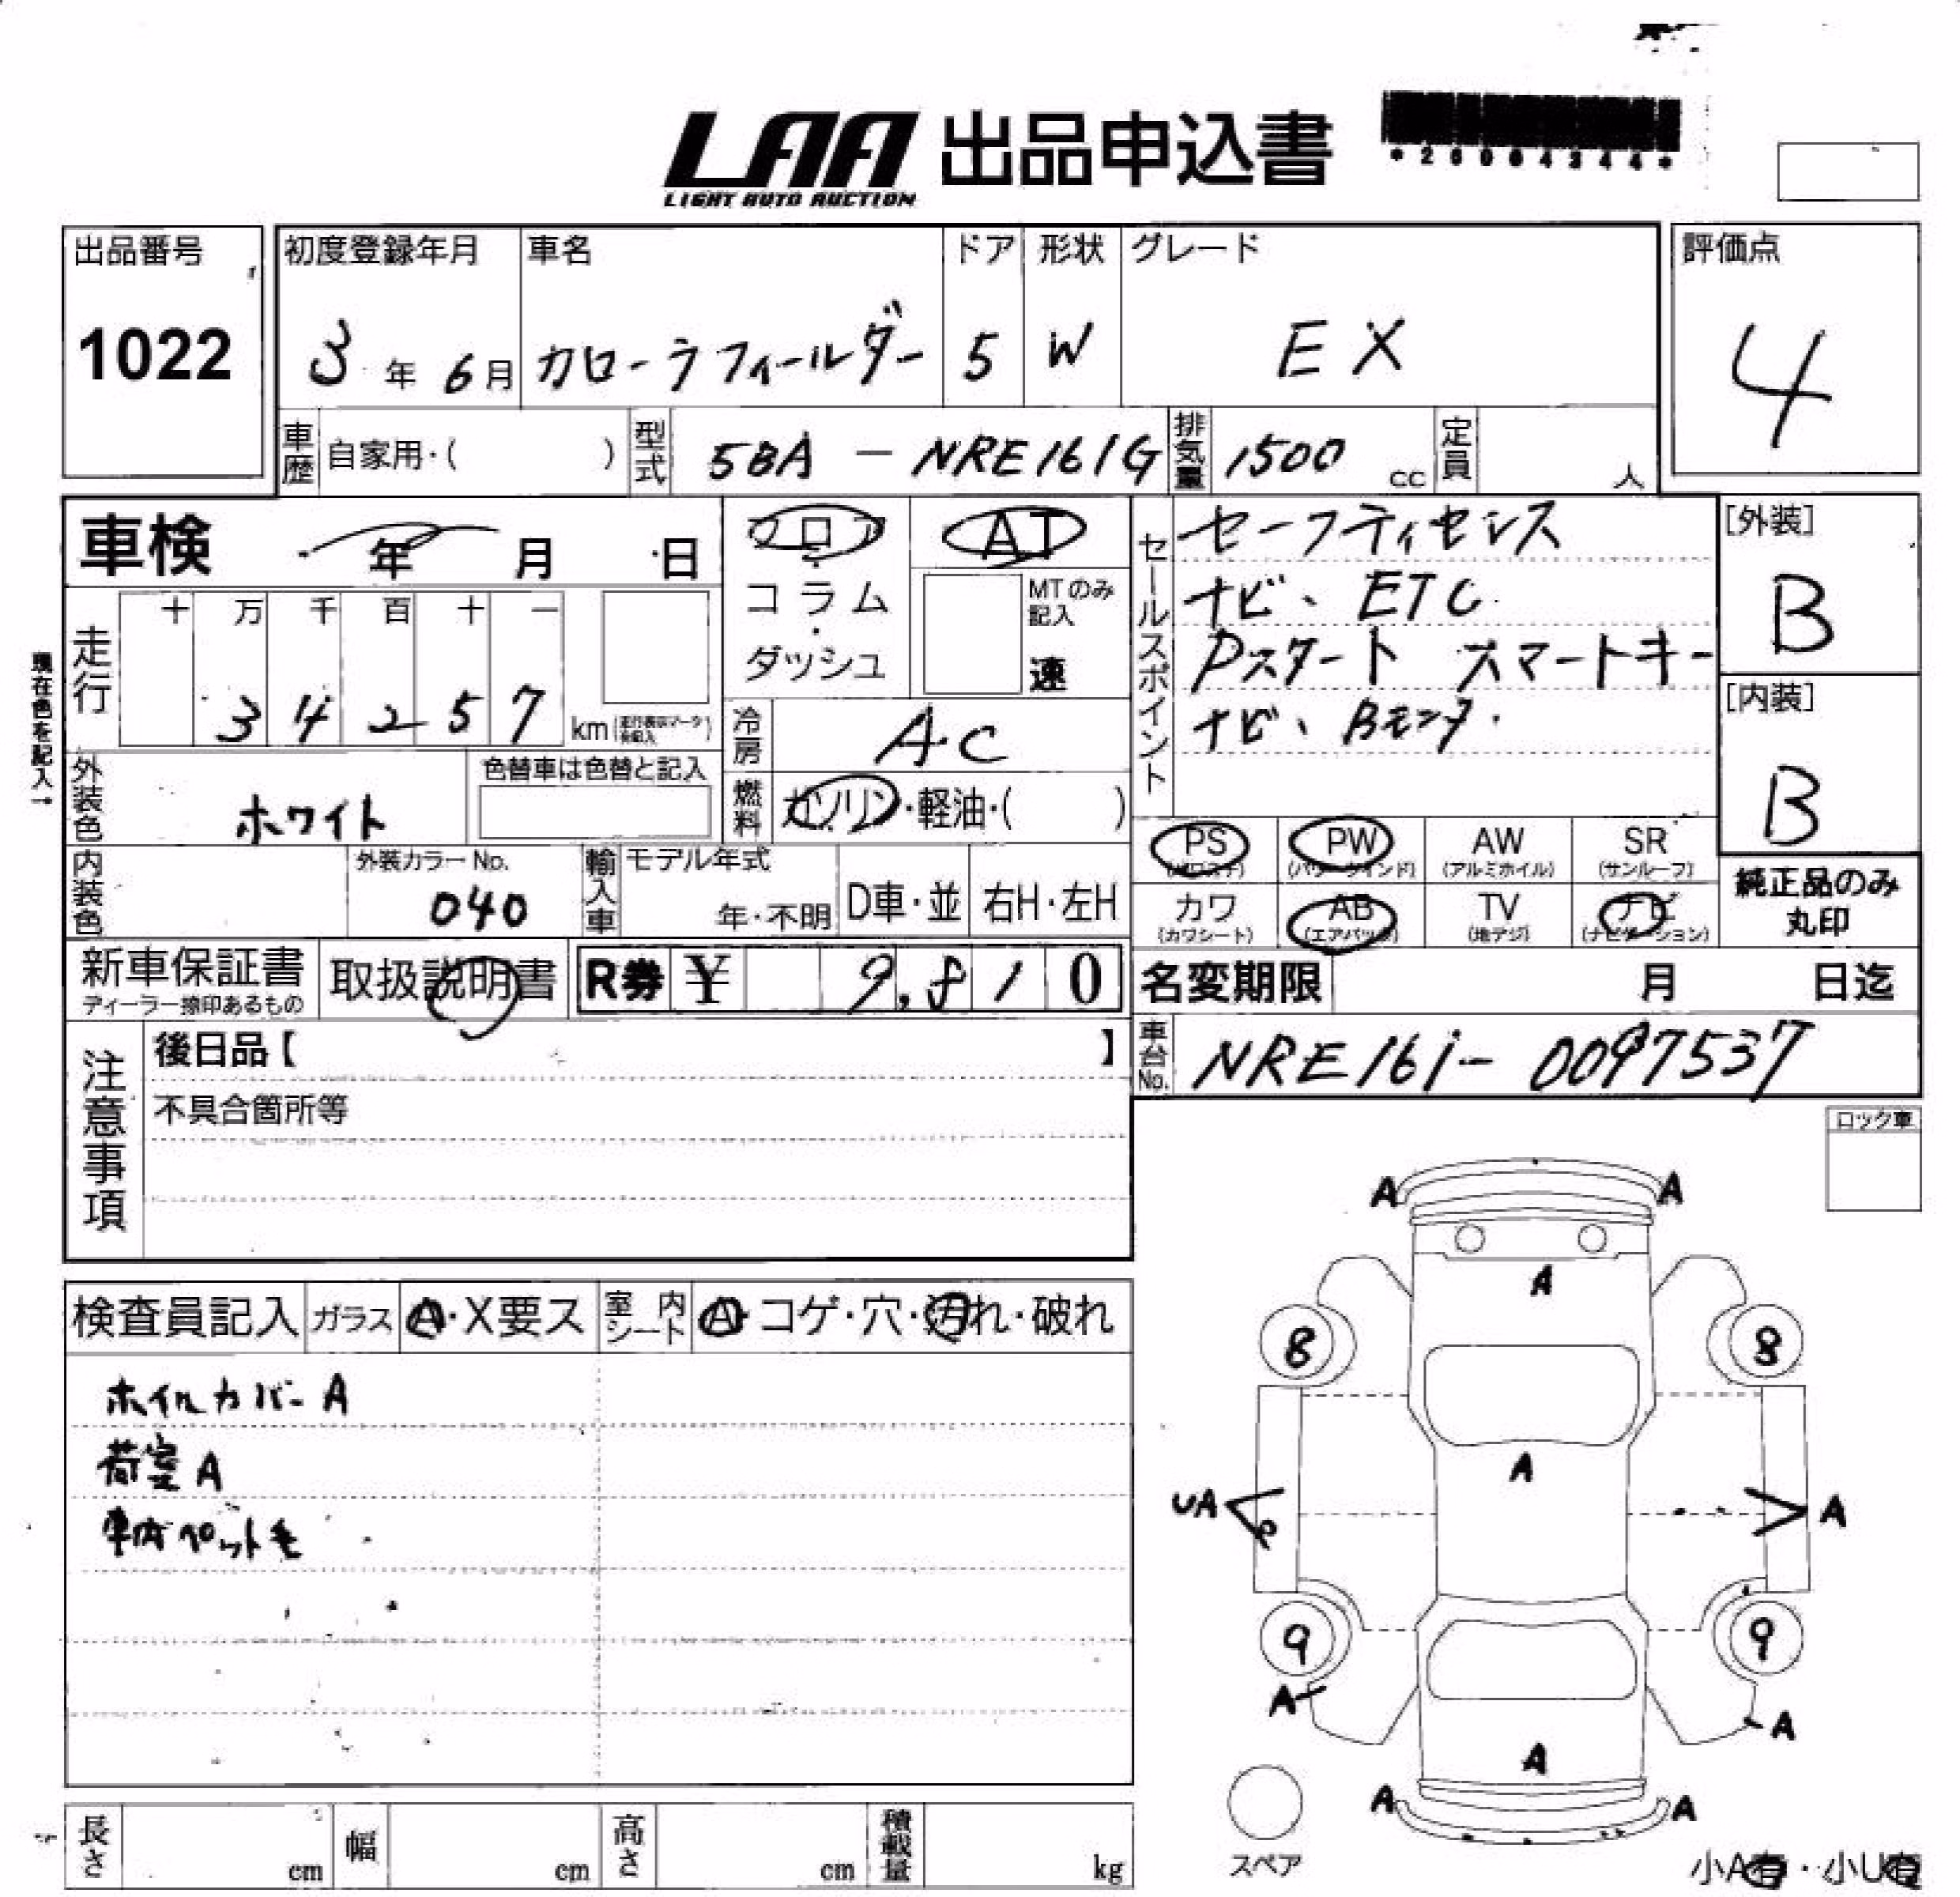 LAA 出品申込書
LIGHT AUTO AUCTION
*26064344*
出品番号
1022
初度登録年月
3年 6月
車名
カローラフィールダー
ドア
5
形状
W
グレード
EX
評価点
4
車歴
自家用・( )
型式
5BA - NRE161G
排気量
1500 cc
定員
人
車検 年 月 日
フロア・コラム・ダッシュ
AT
MTのみ記入
速
セールスポイント
セーフティセンス
ナビ、ETC.
Pスタート スマートキー
ナビ、Bモニタ.
[外装]
B
[内装]
B
現在色を記入→
走行
十 万 千 百 十 一
3 4 2 5 7 km
冷房
AC
外装色
ホワイト
色替車は色替と記入
燃料
ガソリン・軽油・( )
PS
(パワステ)
PW
(パワーウインド)
AW
(アルミホイル)
SR
(サンルーフ)
内装色
外装カラーNo.
040
輸入車
モデル年式
年・不明
D車・並
右H・左H
カワ
(カワシート)
AB
(エアバッグ)
TV
(地デジ)
ナビ
(ナビゲーション)
純正品のみ
丸印
新車保証書
ディーラー捺印あるもの
取扱説明書
R券 ¥ 9,810
名変期限 月 日迄
車台No.
NRE161-0097537
注意事項
後日品【 】
不具合箇所等
ロック車
検査員記入
ガラス
A・X要ス
室内シート
A・コゲ・穴・汚れ・破れ
ホイルカバーA
荷室A
車内ペット毛
A A
A
8 8
A
UA A
P
9 9
A A
A
A A
スペア
長さ cm
幅 cm
高さ cm
積載量 kg
小A有・小U有